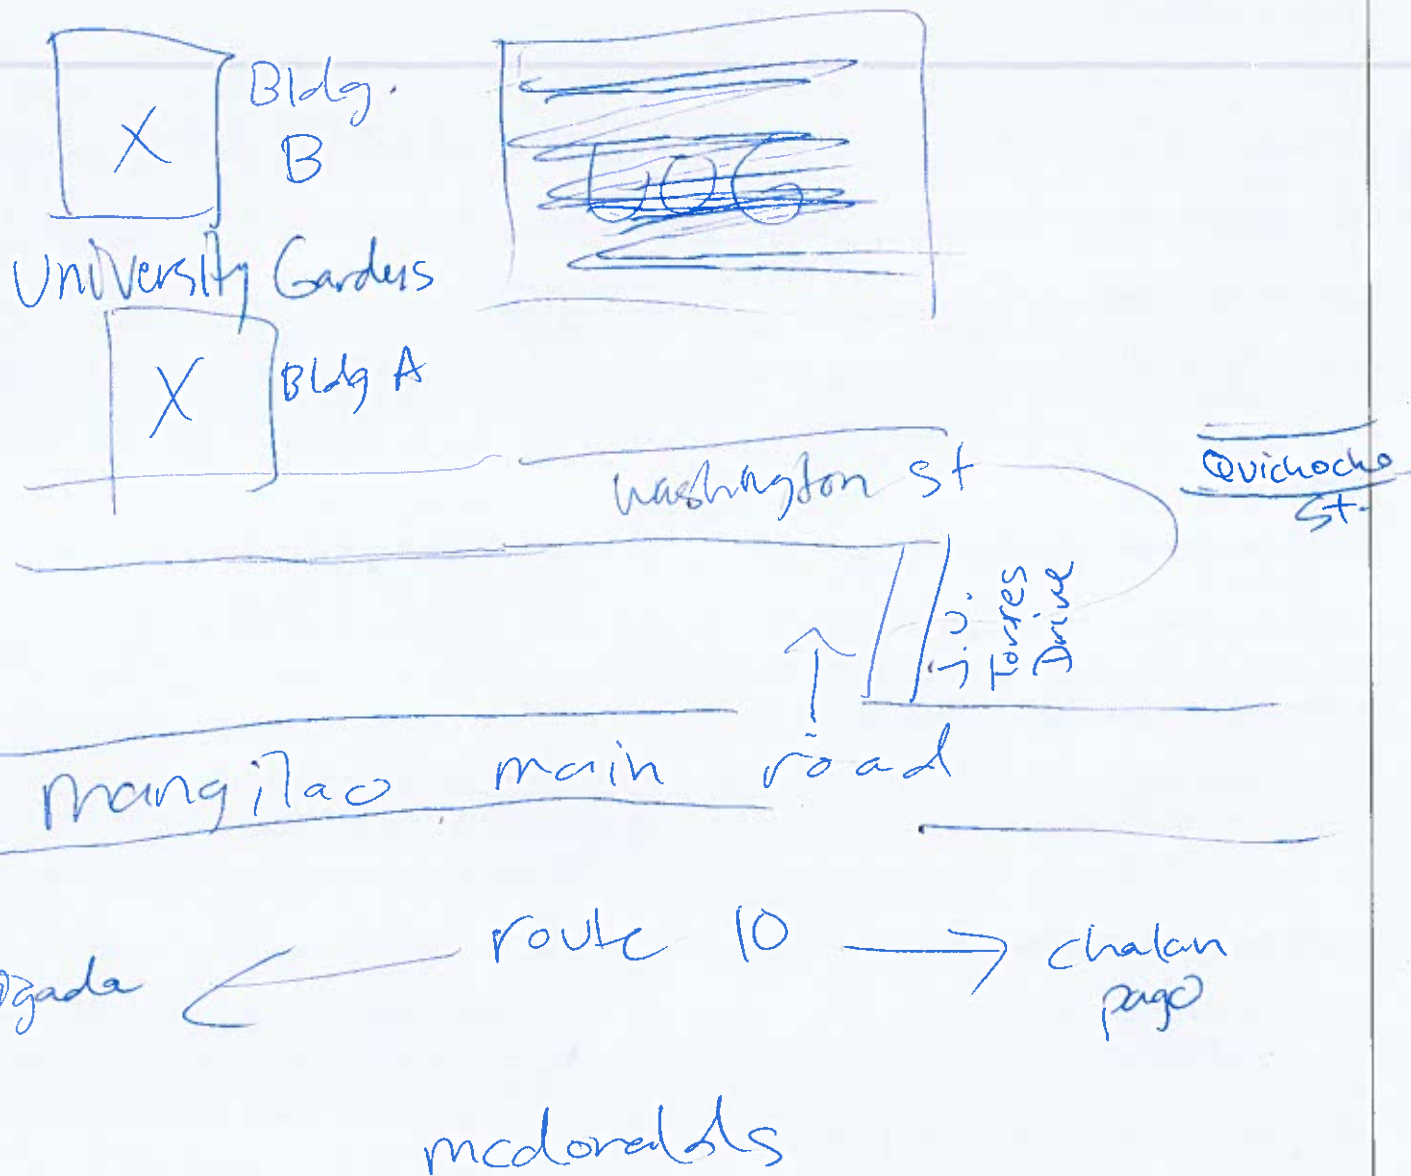 Bldg.
B
UOG
University Gardens
Bldg A
washington st
Quichocho
St.
J.U.
Torres
Drive
mangilao main road
route 10
chalan
pago
mcdonalds